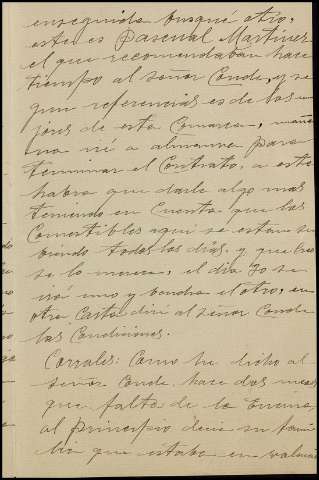 enseguida busqué otro,
este es Pascual Martinez
el que recomendaban hace
tiempo al señor Conde, y se
gun referencias es de los me
jores de esta Comarca, maña
na iré a almansa para
terminar el Contrato, a este
habra que darle algo mas
teniendo en Cuenta que los
Comestibles aqui se estan su
biendo todos los dias, y que
se lo merece, el dia 30 se
irá uno y vendra el otro, en
otra Carta diré al señor Conde
las Condiciones.
Corrales: Como he dicho al
señor Conde, hace dos meses
que falta de la Encina,
al principio decia su fami
lia que estaba en valencia